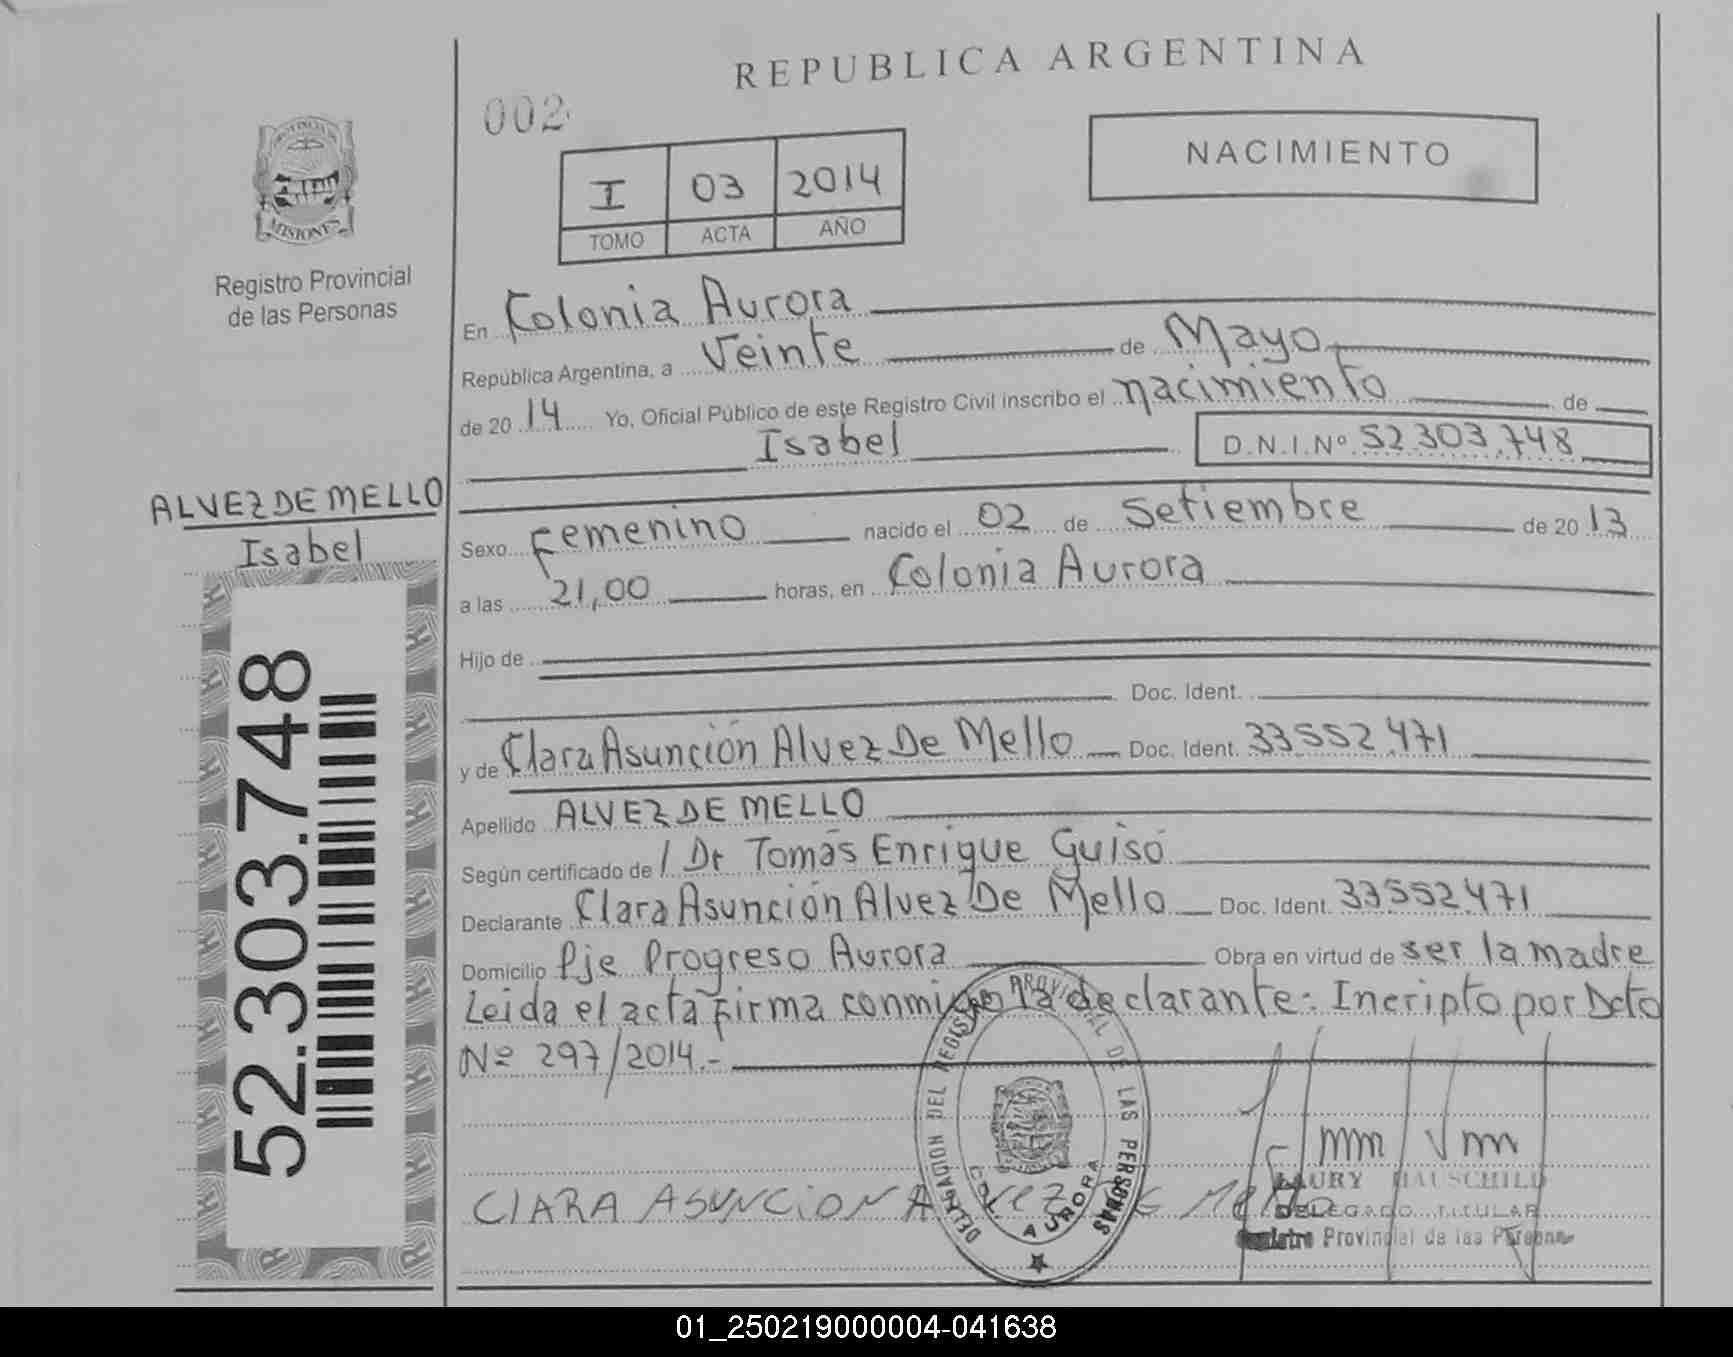 REPUBLICA ARGENTINA
002
NACIMIENTO
I 03 2014
TOMO ACTA AÑO
PROVINCIA DE
MISIONES
Registro Provincial
de las Personas
En Colonia Aurora
República Argentina, a Veinte de Mayo
de 20 14 Yo, Oficial Público de este Registro Civil inscribo el nacimiento de
Isabel D.N.I.Nº 52.303.748
ALVEZ DE MELLO
Isabel
52.303.748
Sexo Femenino nacido el 02 de Setiembre de 20 13
a las 21,00 horas, en Colonia Aurora
Hijo de
Doc. Ident.
y de Clara Asunción Alvez De Mello Doc. Ident. 33552471
Apellido ALVEZ DE MELLO
Según certificado de / Dr Tomás Enrique Guiso
Declarante Clara Asunción Alvez De Mello Doc. Ident. 33552471
Domicilio Pje Progreso Aurora Obra en virtud de ser la madre
Leida el acta firma conmigo la declarante: Incripto por Dcto
Nº 297/2014.-
DELEGACION DEL REGISTRO PROVINCIAL DE LAS PERSONAS
COL. AURORA
CLARA ASUNCION ALVEZ DE Mello
LAURY HAUSCHILD
DELEGADO TITULAR
Registro Provincial de las Personas
01_250219000004-041638